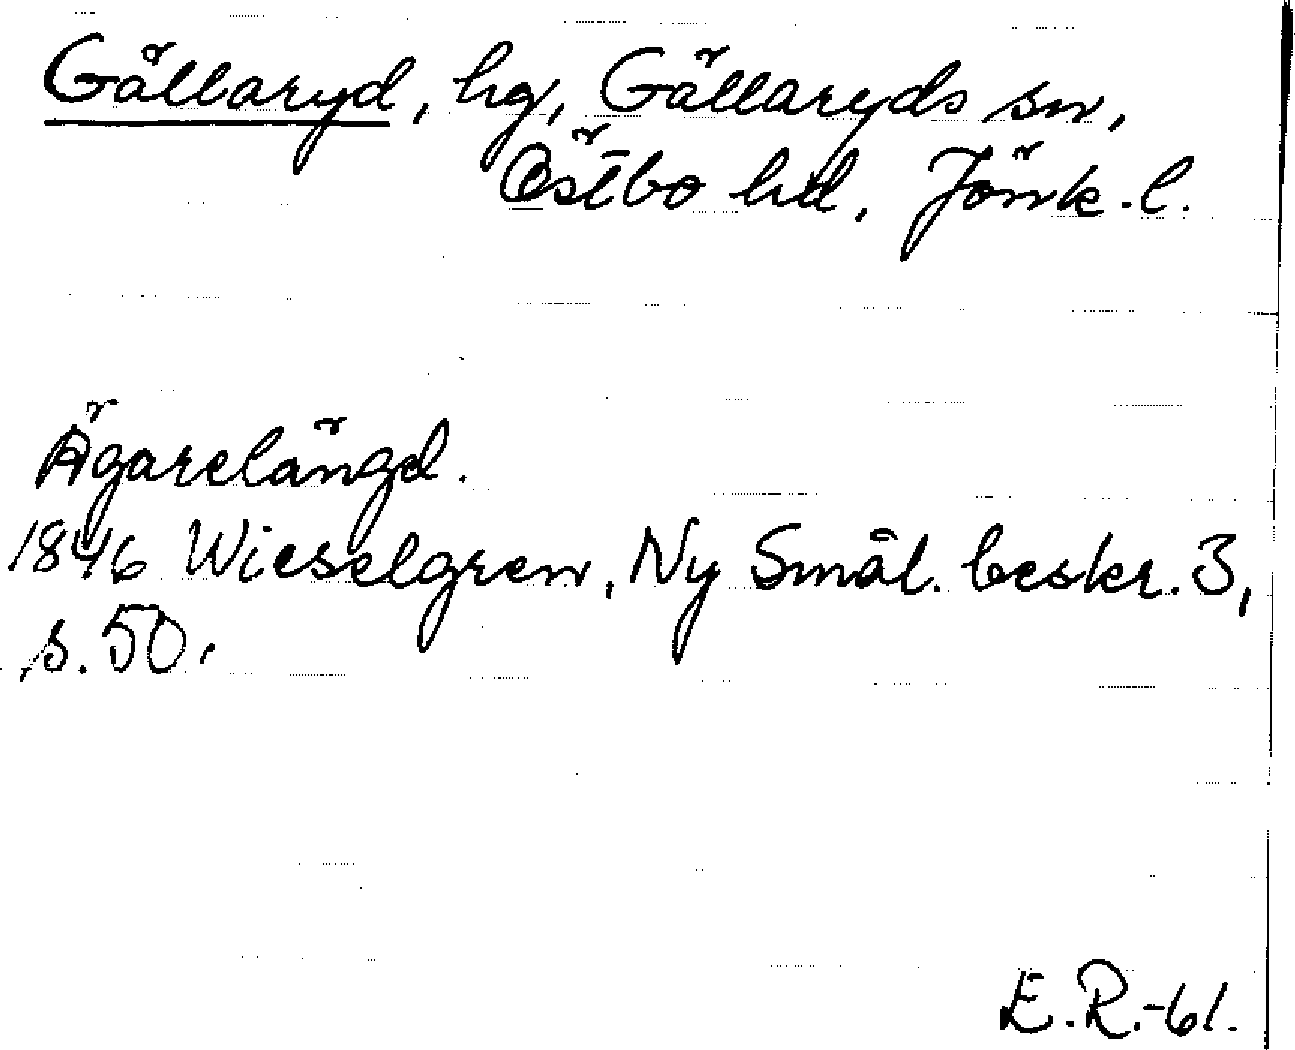 Gällaryd, hg, Gällaryds sn,
Östbo hd, Jönk. l.
Ägarelängd.
1846 Wieselgren, Ny Smål. beskr. 3,
s. 50.
E.R.-61.